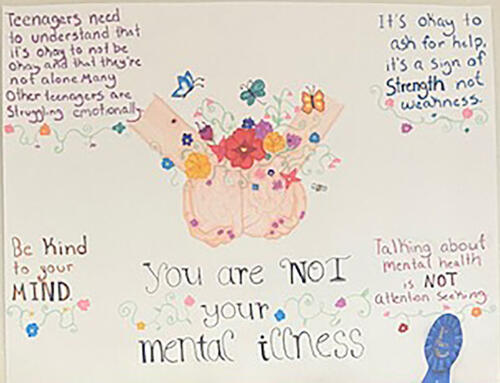 Teenagers need
to understand that
it's okay to not be
okay and that they're
not alone. Many
Other teenagers are
Struggling emotionally
It's okay to
ask for help,
it's a sign of
Strength not
weakness.
Be Kind
to your
MIND
Talking about
mental health
is NOT
Attention Seeking
You are NOT
your
mental illness